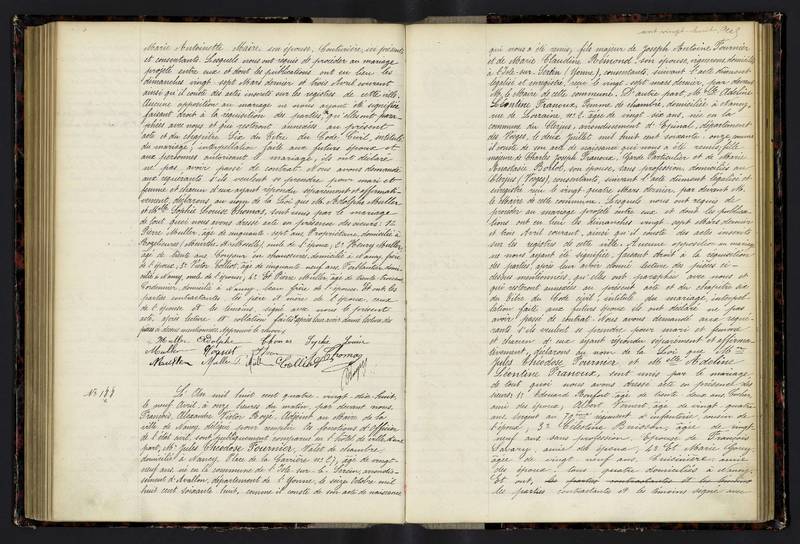 Marie Antoinette Maire son épouse, Couturière, ici présents
et consentants. Lesquels nous ont requis de procéder au mariage
projeté entre eux et dont les publications ont eu lieu les
dimanches vingt sept Mars dernier et trois Avril courant
ainsi qu'il conste des actes inscrits sur les registres de cette ville.
Aucune opposition au mariage ne nous ayant été signifiée
faisant droit à la réquisition des parties, qu'elles ont para-
phées avec nous et qui resteront annexées au présent
acte et du chapitre Six du Titre du Code Civil, intitulé
du mariage; interpellation faite aux futurs époux et
aux personnes autorisant le mariage, ils ont déclaré
ne pas avoir passé de contrat. Nous avons demandé
aux requérants s'ils veulent se prendre pour mari et
femme et chacun d'eux ayant répondu séparément et affirmati-
vement, déclarons au nom de la Loi que M. Adolphe Muller
et Mlle Sophie Louise Thomas, sont unis par le mariage
de tout quoi nous avons dressé acte en présence des sieurs: 1°
Pierre Muller, âgé de cinquante sept ans, Propriétaire, domicilié à
oncle de l'époux; 2° Henry Muller,
âgé de trente ans, Coupeur en chaussures, domicilié à Nancy, frère
de l'époux; 3° Victor Colliot, âgé de cinquante neuf ans, Ferblantier, domi-
cilié à Nancy, oncle de l'épouse; 4° Et Pierre Muller, âgé de trente
Cordonnier, domicilié à Nancy, beau frère de l'épouse. Et ont, les
parties contractantes les père et mère de l'époux, ceux
de l'épouse et les témoins, signé avec nous le présent
acte, après lecture et collation faites
Muller Adolphe Thomas Sophie
Muller
Muller Colliot Thomas
N° 188
L'An mil huit cent quatre-vingt-dix-huit,
le neuf Avril, à onze heures du matin, par devant nous
François Alexandre Victor Adjoint au Maire de la
ville de Nancy, délégué pour remplir les fonctions d'officier
de l'état civil, sont publiquement comparus en l'hôtel de ville, d'une
part, M. Jules Théodose Fournier, Valet de chambre,
domicilié à Nancy, Place de la Carrière n° 27, âgé de vingt-
neuf ans, né en la commune de l'Isle-sur-le-Serein, arrondis-
sement d'Avallon, département de l'Yonne, le seize Octobre mil
huit cent soixante huit, comme il conste de son acte de naissance
cent vingt-huit
qui nous a été remis, fils majeur de Joseph Antoine Fournier
et de Marie Claudine Rémond, son épouse, domiciliés
à l'Isle-sur-Serein (Yonne), consentants, suivant l'acte dûment
légalisé et enregistré, reçu le vingt-sept mars dernier, par devant
M. le Maire de cette commune. D'autre part, Mlle Adeline
Léontine Franoux, Femme de chambre, domiciliée à Nancy,
rue de Lorraine, n° 2, âgée de vingt six ans, née en la
commune du Clerjus, arrondissement d'Epinal, département
des Vosges, le deux Juillet mil huit cent soixante-onze comme
il conste de son acte de naissance qui nous a été remis, fille
majeure de Charles Joseph Franoux, Garde Particulier et de Marie
Anastasie Bolot, son épouse, sans profession, domiciliés au
Clerjus (Vosges), consentants, suivant l'acte dûment légalisé et
enregistré reçu le vingt-quatre Mars dernier par devant M.
le Maire de cette commune. Lesquels nous ont requis de
procéder au mariage projeté entre eux et dont les publica-
tions ont eu lieu les dimanches vingt sept Mars dernier
et trois Avril courant, ainsi qu'il conste des actes inscrits
sur les registres de cette ville. Aucune opposition au mariage
ne nous ayant été signifiée, faisant droit à la réquisition
des parties, après leur avoir donné lecture des pièces ci-
dessus mentionnées, qu'elles ont paraphées avec nous et
qui resteront annexées au présent acte et du chapitre six
du Titre du Code civil, intitulé du mariage, interpel-
lation faite aux futurs époux ils ont déclaré ne pas
avoir passé de contrat. Nous avons demandé aux requé-
rants s'ils veulent se prendre pour mari et femme
et chacun d'eux ayant répondu séparément et affirma-
tivement, déclarons au nom de la Loi que M.
Jules Théodose Fournier et Mlle Adeline
Léontine Franoux, sont unis par le mariage
de tout quoi nous avons dressé acte en présence des
sieurs: 1° Edouard âgé de trente deux ans, Cocher
ami des époux; Albert âgé de vingt-quatre
ans, Sergent au régiment d'infanterie, cousin de
l'épouse; 3° Célestine Buisson, âgée de vingt
neuf ans sans profession, Epouse de François
Savary, amie de l'époux; 4° Et Marie
âgée de vingt neuf ans, Cuisinière, amie
des époux, tous quatre domiciliés à Nancy.
Et ont, les parties contractantes et les témoins
les parties contractantes et les témoins signé avec